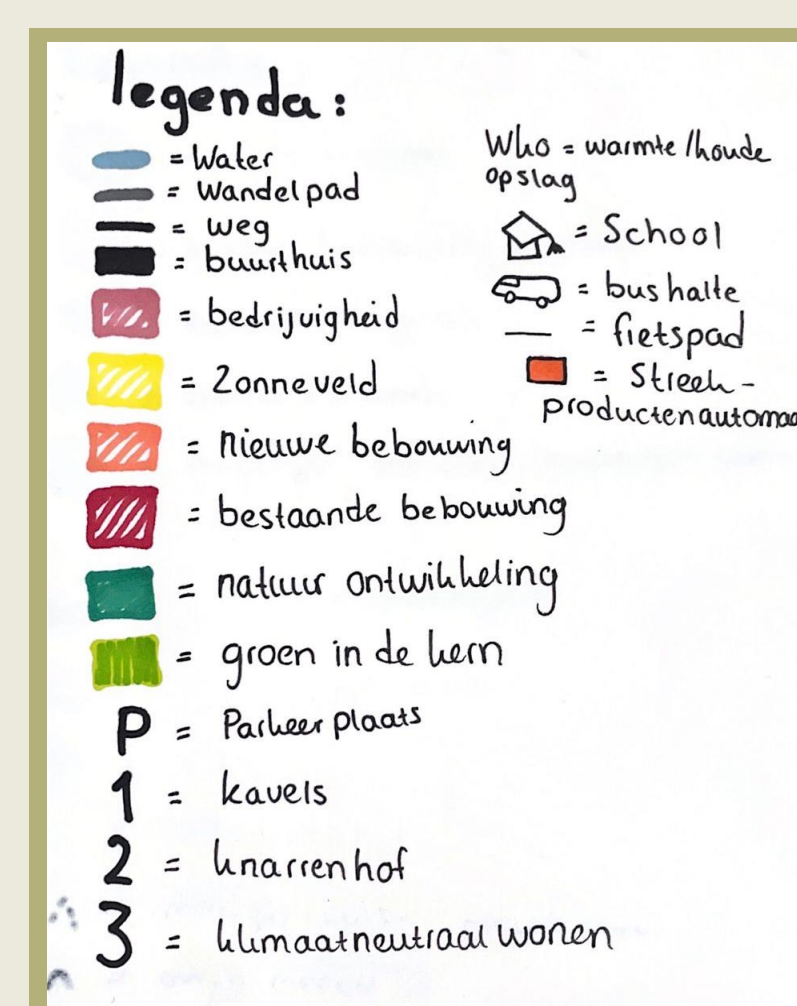 legenda:
= Water
= Wandelpad
= weg
= buurthuis
= bedrijvigheid
= Zonneveld
= nieuwe bebouwing
= bestaande bebouwing
= natuur ontwikkeling
= groen in de kern
P = Parkeerplaats
1 = kavels
2 = knarrenhof
3 = klimaatneutraal wonen
Wko = warmte/koude
opslag
= School
= bushalte
= fietspad
= Streek-
productenautomaa